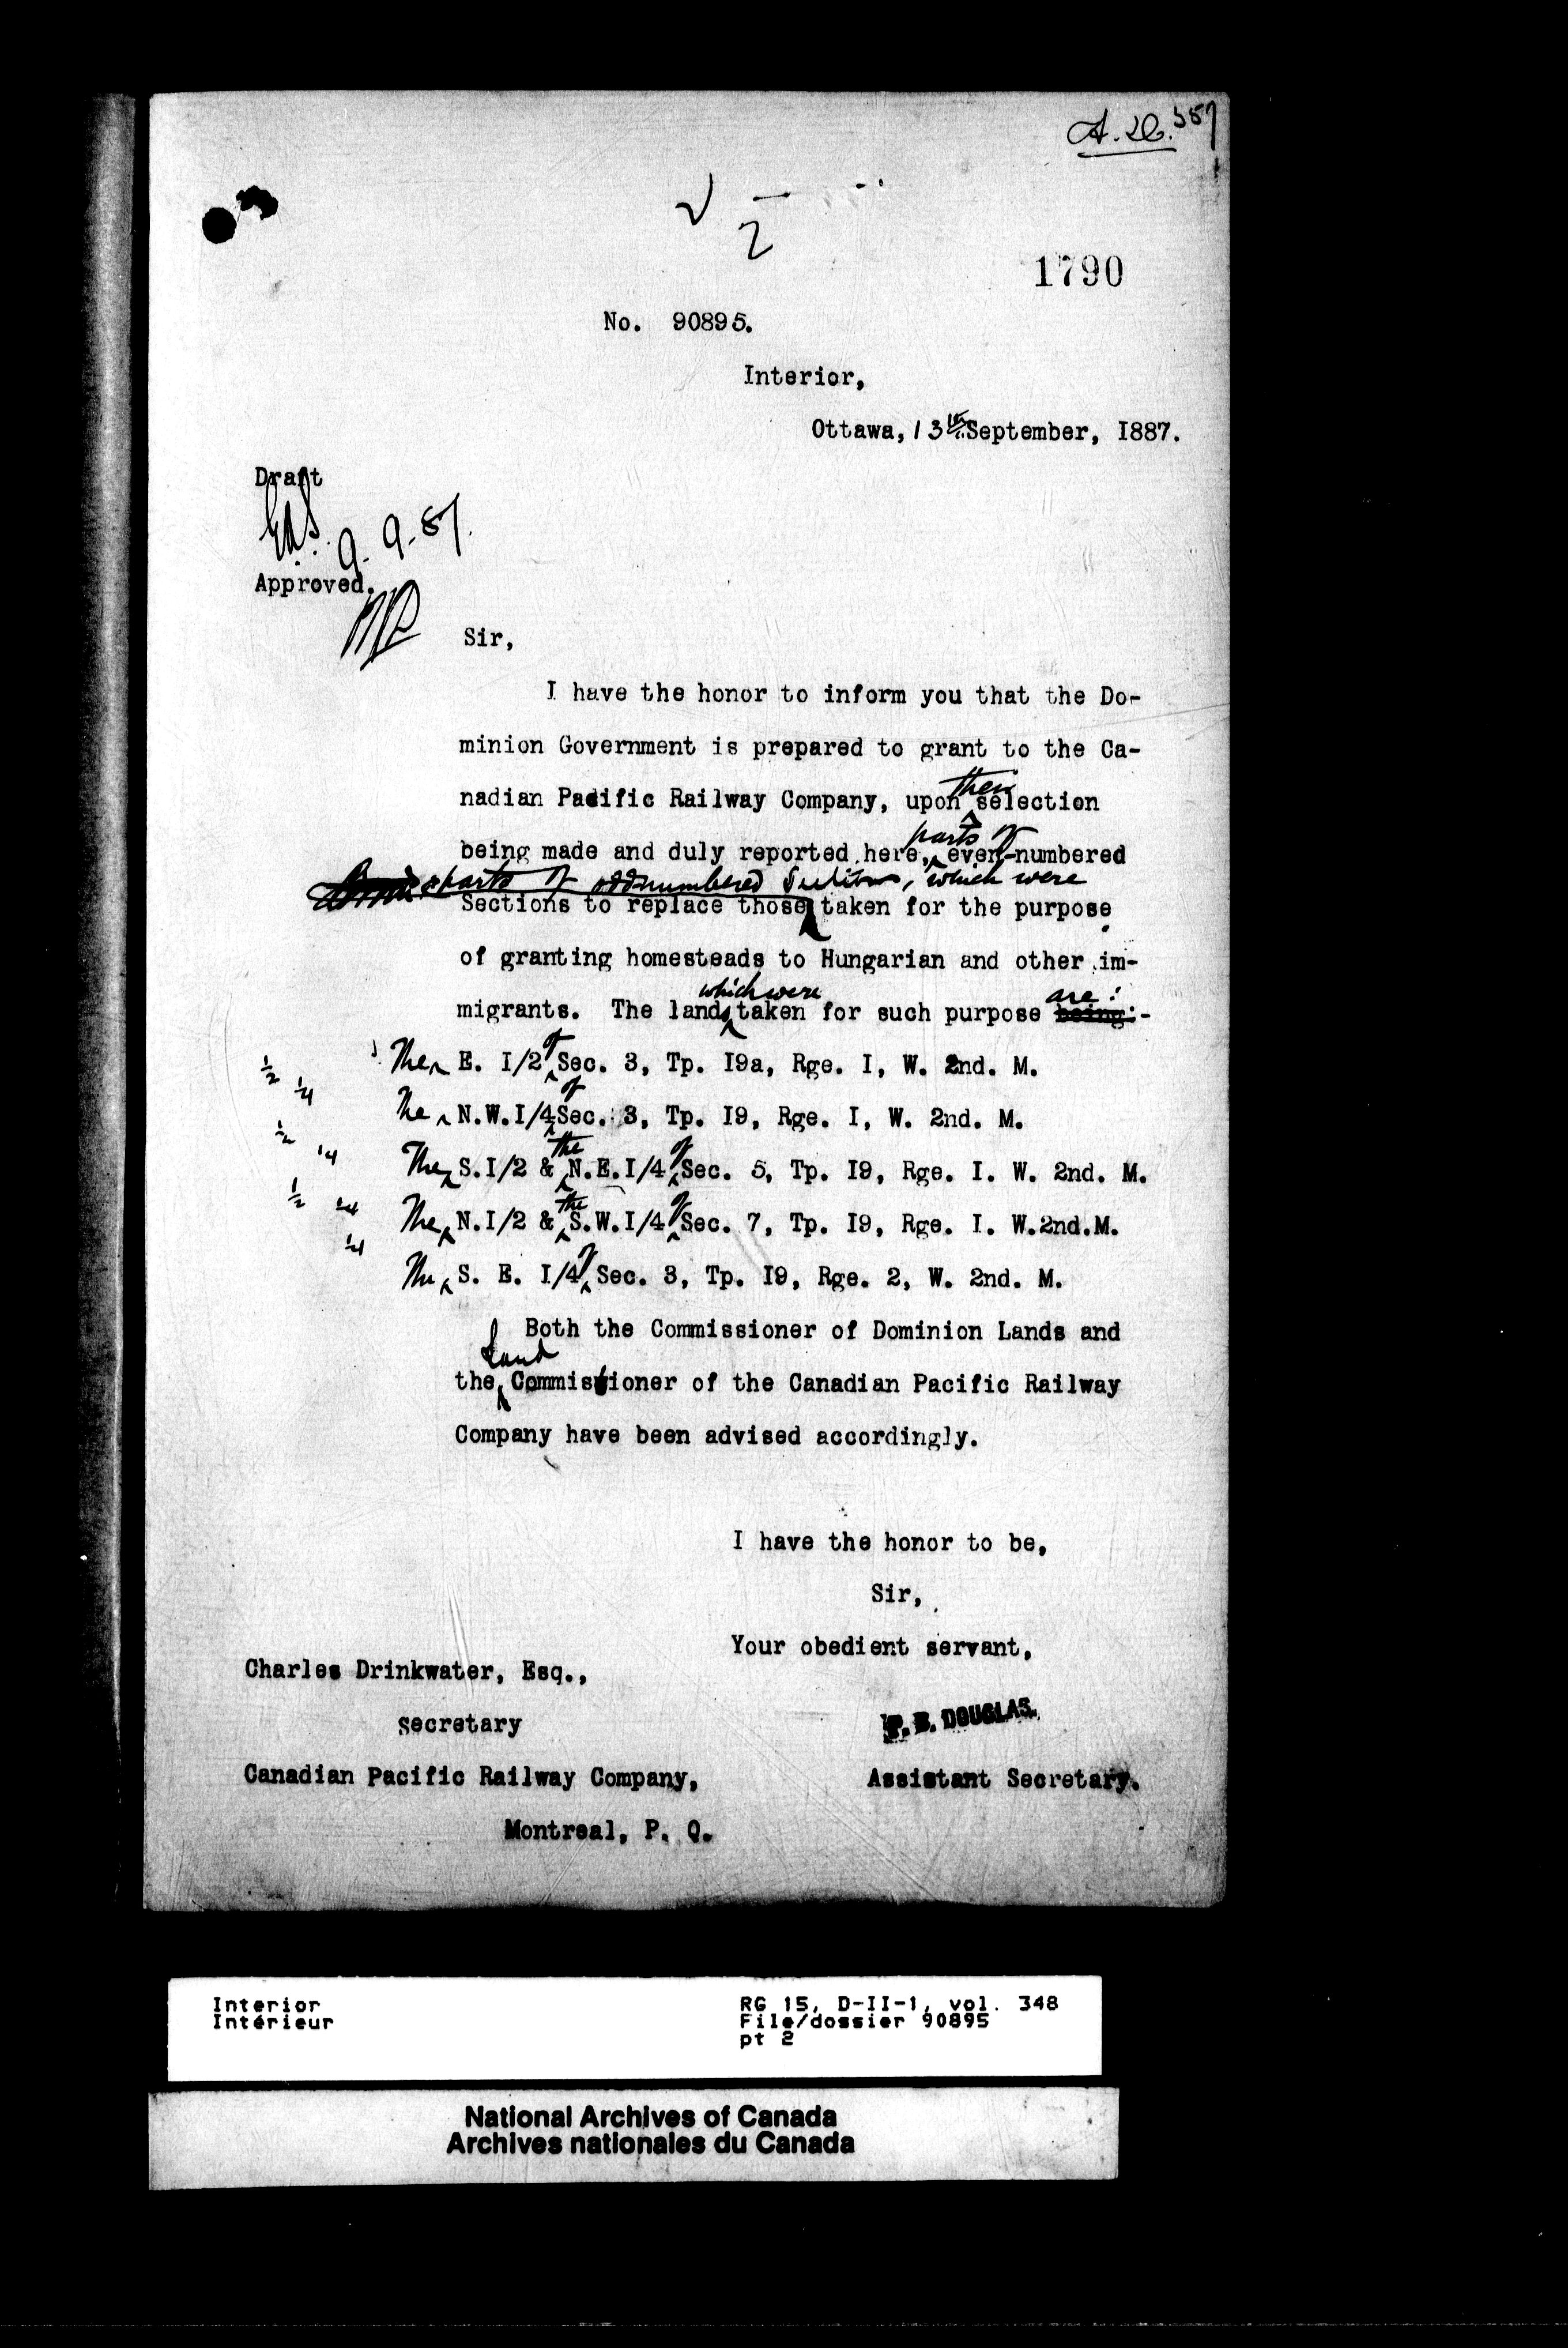 A. 26. 357
2
1790
No. 90895.
Interior,
Ottawa, 13th September, I887.
Draft
9. 9. 87.
Approved.
Sir,
I have the honor to inform you that the Do-
minion Government is prepared to grant to the Ca-
their
nadian Pacific Railway Company, upon selection
parts of
being made and duly reported here, even-numbered
parts of odd numbered Sections, which were
Sections to replace those taken for the purpose
of granting homesteads to Hungarian and other im-
which were are:
migrants. The lands taken for such purpose being:-
The E. I/2 of Sec. 3, Tp. I9a, Rge. I, W. 2nd. M.
1/2 1/4
The N.W.I/4 of Sec. 3, Tp. I9, Rge. I, W. 2nd. M.
1/2 1/4
The S.I/2 & the N.E.I/4 of Sec. 5, Tp. I9, Rge. I. W. 2nd. M.
1/2 1/4
The N.I/2 & the S.W.I/4 of Sec. 7, Tp. I9, Rge. I. W.2nd.M.
1/4
The S. E. I/4 of Sec. 3, Tp. I9, Rge. 2, W. 2nd. M.
Both the Commissioner of Dominion Lands and
Land
the Commissioner of the Canadian Pacific Railway
Company have been advised accordingly.
I have the honor to be,
Sir,
Your obedient servant,
Charles Drinkwater, Esq.,
P. B. DOUGLAS.
Secretary
Canadian Pacific Railway Company,
Assistant Secretary.
Montreal, P. Q.
Interior
Intérieur
RG 15, D-II-1, vol. 348
File/dossier 90895
pt 2
National Archives of Canada
Archives nationales du Canada